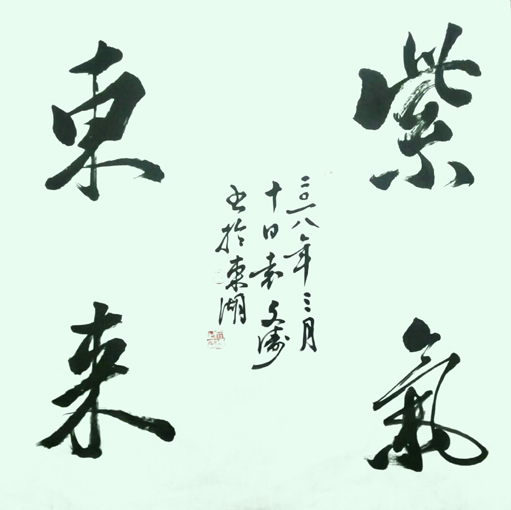 紫氣
東來
二〇一八年三月
十日袁文濤
书於東湖